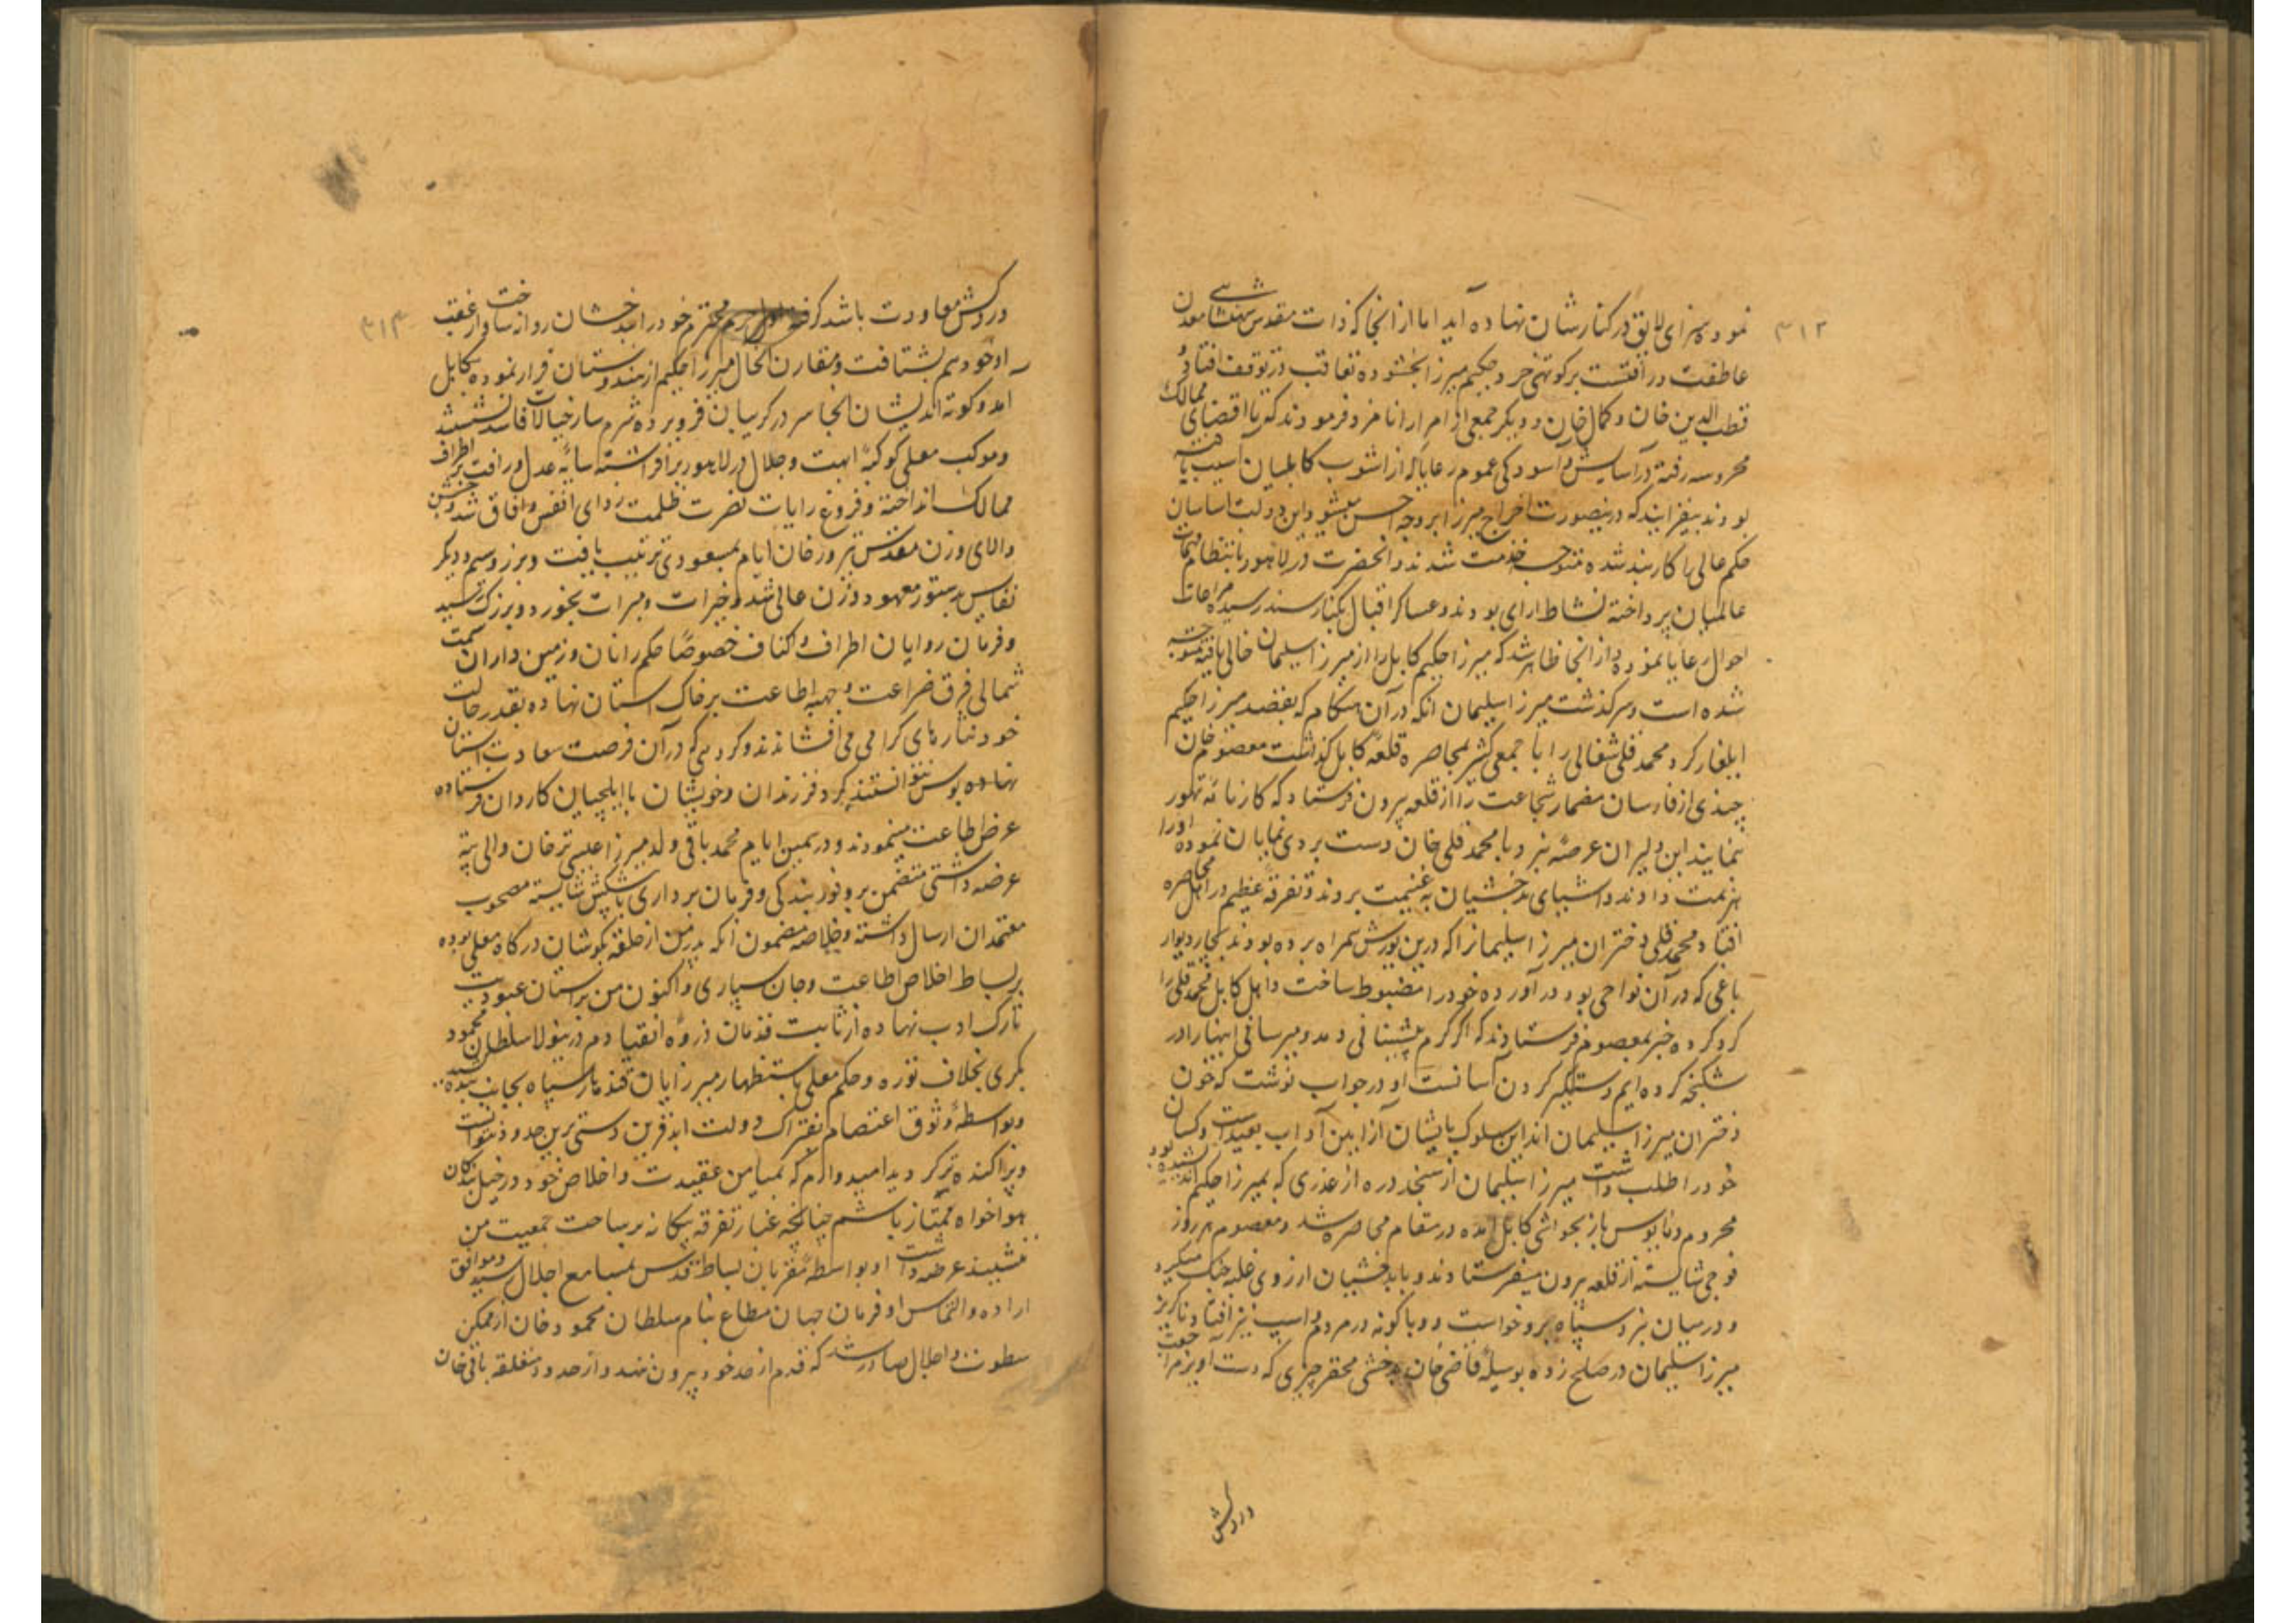 ۳۱۳
نموده سزای لایق در کنارشان نهاده آید اما از انجا که ذات مقدس شهنشاهی معدن
عاطفت و رافتست بر کوتهی خرد حکیم میرزا بخشوده تعاقب در توقف افتاد و
قطب الدین خان و کمال خان و دیگر جمعی از امرا را نامزد فرمودند که تا اقصای ممالک
محروسه رفته در آسایش و آسودگی عموم رعایا که از اشوب کابلیان آسیب یافته
بودند بیفزایند که درینصورت اخراج میرزا بر وجه احسن میشود این دولت اساسان
حکم عالی را کاربند شده متوجه خدمت شدند و انحضرت در لاهور بانتظام مهمات
عالمیان پرداخته نشاط ارای بودند و عساکر اقبال بکنار سند رسیده مراعات
احوال رعایا نموده و از انجا ظاهر شد که میرزا حکیم کابل را از میرزا سلیمان خالی یافته متوجه
شده است و سرگذشت میرزا سلیمان انکه در آن هنگام که بقصد میرزا حکیم
ایلغار کرد محمد قلی شغالی را با جمعی کثیر بمحاصره قلعه کابل گذاشت معصوم خان
چندی از فارسان مضمار شجاعت را از قلعه بیرون فرستاد که کارنامه تهور
نمایند این دلیران عرصه نبرد با محمد قلی خان دست بردی نمایان نموده اورا
هزیمت دادند و اشیای بدخشیان به غنیمت بردند و تفرقه عظیم در اهل محاصره
افتاد و محمد قلی دختران میرزا سلیمانرا که درین یورش همراه برده بودند بچار دیوار
باغی که در آن نواحی بود در آورده خود را مضبوط ساخت و اهل کابل محمد قلی را
گرد کرده خبر بمعصوم فرستادند که اگر کرم پیشنانی دمد و میرسانی اینها را در
شکنجه کرده ایم و دستگیر کردن آسانست او در جواب نوشت که چون
دختران میرزا سلیمان اند این سلوک بایشان از آیین آداب بعیدست و کسان
خود را طلب داشت میرزا سلیمان از سنجد دره از عذری که بمیرزا حکیم اندیشیده بود
محروم و مایوس باز بحواشی کابل آمده در مقام محاصره شد و معصوم هر روز
فوجی شایسته از قلعه بیرون میفرستادند و با بدخشیان ارزوی غلبه جنگ میکرد
و درمیان نبرد سپاه برودت خواست و وبا گونه در مردم و اسپ نیز افتاد ناگریز
میرزا سلیمان در صلح زده بوسیله قاضی خان بدخشی محقر چیزی که دست اویز مراجعت
دروکش
۳۱۴
دروکش معاودت باشد گرفت اول حرم محترم خود را ببدخشان روانه ساخت و از عقب
او خود هم بشتافت و مقارن انحال میرزا حکیم از هندوستان فرار نموده بکابل
امد و کوته اندیشان انجا سر در گریبان فرو برده شرمسار خیالات فاسد نشستند
و موکب معلی کوکبه ابهت و جلال در لاهور بر افراشته سایه عدل و رافت بر اطراف
ممالک انداخته و فروغ رایات نصرت ظلمت زدای انفس و آفاق شد و جشن
والای وزن مقدس بروز خان ایام بمسعودی ترتیب یافت و بزر و سیم و دیگر
نفایس بدستور معهود وزن عالی شد و خیرات و مبرات بخورد و بزرگ رسید
و فرمان روایان اطراف و اکناف خصوصاً حکم رانان و زمین داران سمت
شمالی فرق ضراعت و جبهه اطاعت بر خاک استان نهاده بقدر حالت
خود نثارهای گرامی می افشاندند و گروهی که در آن فرصت سعادت استان
نهاده بوس نتوانستند کرد فرزندان و خویشان با ایلچیان کاردان فرستاده
عرض اطاعت مینمودند و در همین ایام محمد باقی ولد میرزا عیسی ترخان والی تته
عرضه داشتی متضمن بر وفور بندگی و فرمان برداری با پیشکش شایسته مصحوب
معتمدان ارسال داشته و خلاصه مضمون آنکه پدر من از حلقه بگوشان درگاه معلی بوده
بر بساط اخلاص اطاعت و جان سپاری و اکنون من بر استان عبودیت
تارک ادب نهاده از ثابت قدمان ذروه انقیادم درینولا سلطان محمود
بکری بخلاف توره و حکم معلی باستظهار میرزایان قندهار سپاه بجانب بنده کشید
و بواسطه وثوق اعتصام بفتراک دولت ابدقرین دستی برین حدود نتوانست
و پراکنده تر گردید امیدوارم که بمیامن عقیدت و اخلاص خود در خیل بندگان
هواخواه ممتاز باشم چنانچه غبار تفرقه بیگانه بر ساحت جمعیت من
ننشیند عرضه داشت او بواسطه مقربان بساط اقدس بمسامع اجلال رسید و موافق
اراده و التماس او فرمان جهان مطاع بنام سلطان محمود خان از ممکن
سطوت و اجلال صادر شد که قدم از حد خود بیرون ننهد و از حدود متعلقه باقی خان